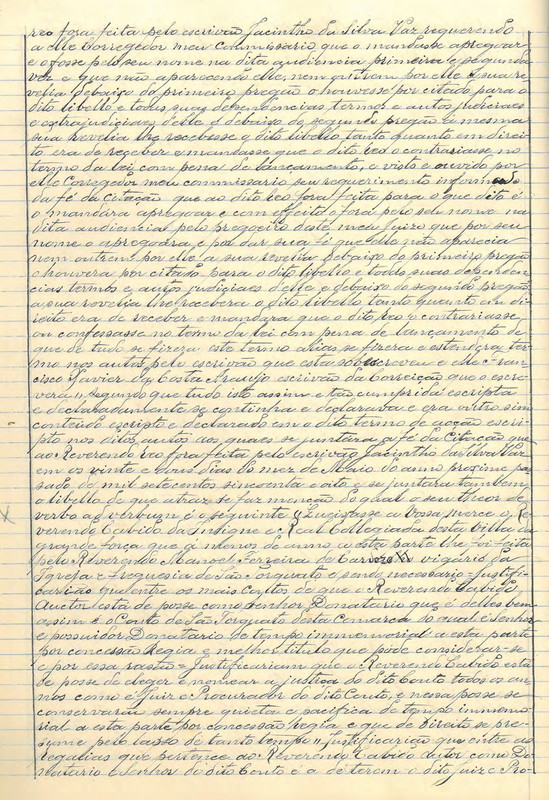 reo fora feita pelo escrivão Jacintho da Silva Vaz requerendo
a elle Corregedor meu Commissario que o mandasse apregoar
e o fosse pelo seu nome na dita audiencia primeira e segunda
vez e que não aparecendo elle, nem outrem por elle á sua re
velia debaixo do primeiro pregão o houvesse por citado para o
dito libello e todas suas dependencias, termos e autos judiciaes
e extrajudiciaes delle e debaixo do segundo pregão á mesma
sua revelia lhe recebesse o dito libello tanto quanto em direi
to era de receber e mandasse que o dito reo o contrariasse no
termo da lei com pena de lançamento, e visto e ouvido por
elle Corregedor meu commissario seu requerimento informado
da fé da citação que ao dito reo fora feita para o que dito é
o mandára apregoar e com effeito o fora pelo seu nome na
dita audiencia pelo pregoeiro deste meu Juizo que por seu
nome o apregoára, e por dar sua fé que elle não aparecia
nem outrem por elle a sua revelia debaixo do primeiro pregão
o houvera por citado para o dito libello e todas suas dependen
cias termos e autos judiciaes delle, e debaixo do segundo pregão
a sua revelia lhe recebera o dito libello tanto quanto em di
reito era de receber e mandára que o dito reo o contrariasse
ou confessasse no termo da lei com pena de lançamento de
que de tudo se fizera este termo alias se fizera e estendera ter
mo nos autos pelo escrivão que esta sobescreveu e elle Fran
cisco Xavier da Costa Araujo escrivão da Correição que o escre
vera,, segundo que tudo isto assim e tão cumpridamente escripto
e declaradamente se continha e declarava e era outro sim
conteudo escripto e declarado em o dito termo de acção escri
pto nos ditos autos aos quaes se juntára a fé da Citação que
ao Reverendo reo fora feita pelo escrivão Jacintho da Silva Vaz
em os vinte e dous dias do mez de Maio do anno proximo pas
sado de mil setecentos sincoenta e oito e se juntára tambem
o libello de que atraz se faz menção do qual o seu theor de
verbo ad verbum é o seguinte,, Queixasse a Vossa mercê o Re
verendo Cabido da Insigne e Real Collegiada desta Villa da
grande força que á menos de anno a esta parte lhe foi feita
pelo Reverendo Manoel Ferreira de vigario da
Igreja e Freguesia de São Torquato e sendo necessario Justifi
carião que entre os mais Coutos de que o Reverendo Cabido
Auctor está de posse como Senhor Donatario que é delles bem
assim é o Couto de São Torquato desta Comarca do qual é Senhor
e possuidor Donatario de tempo immemorial a esta parte
por concessão Regia e melhor titulo que póde considerar-se
e por essa rasão,, Justificariam que o Reverendo Cabido está
de posse de eleger e nomear a justiça do dito Couto todos os an
nos como é Juiz e Procurador do dito Couto, e nessa posse se
conservaram sempre quieta e pacifica de tempo immemo
rial a esta parte por concessão Regia e que de Direito se pre
sume pelo lasso de tanto tempo,, Justificarião que entre as
regalias que pertence ao Reverendo Cabido Autor como Do
natario e Senhor do dito Couto é a de terem o dito juiz e Pro-